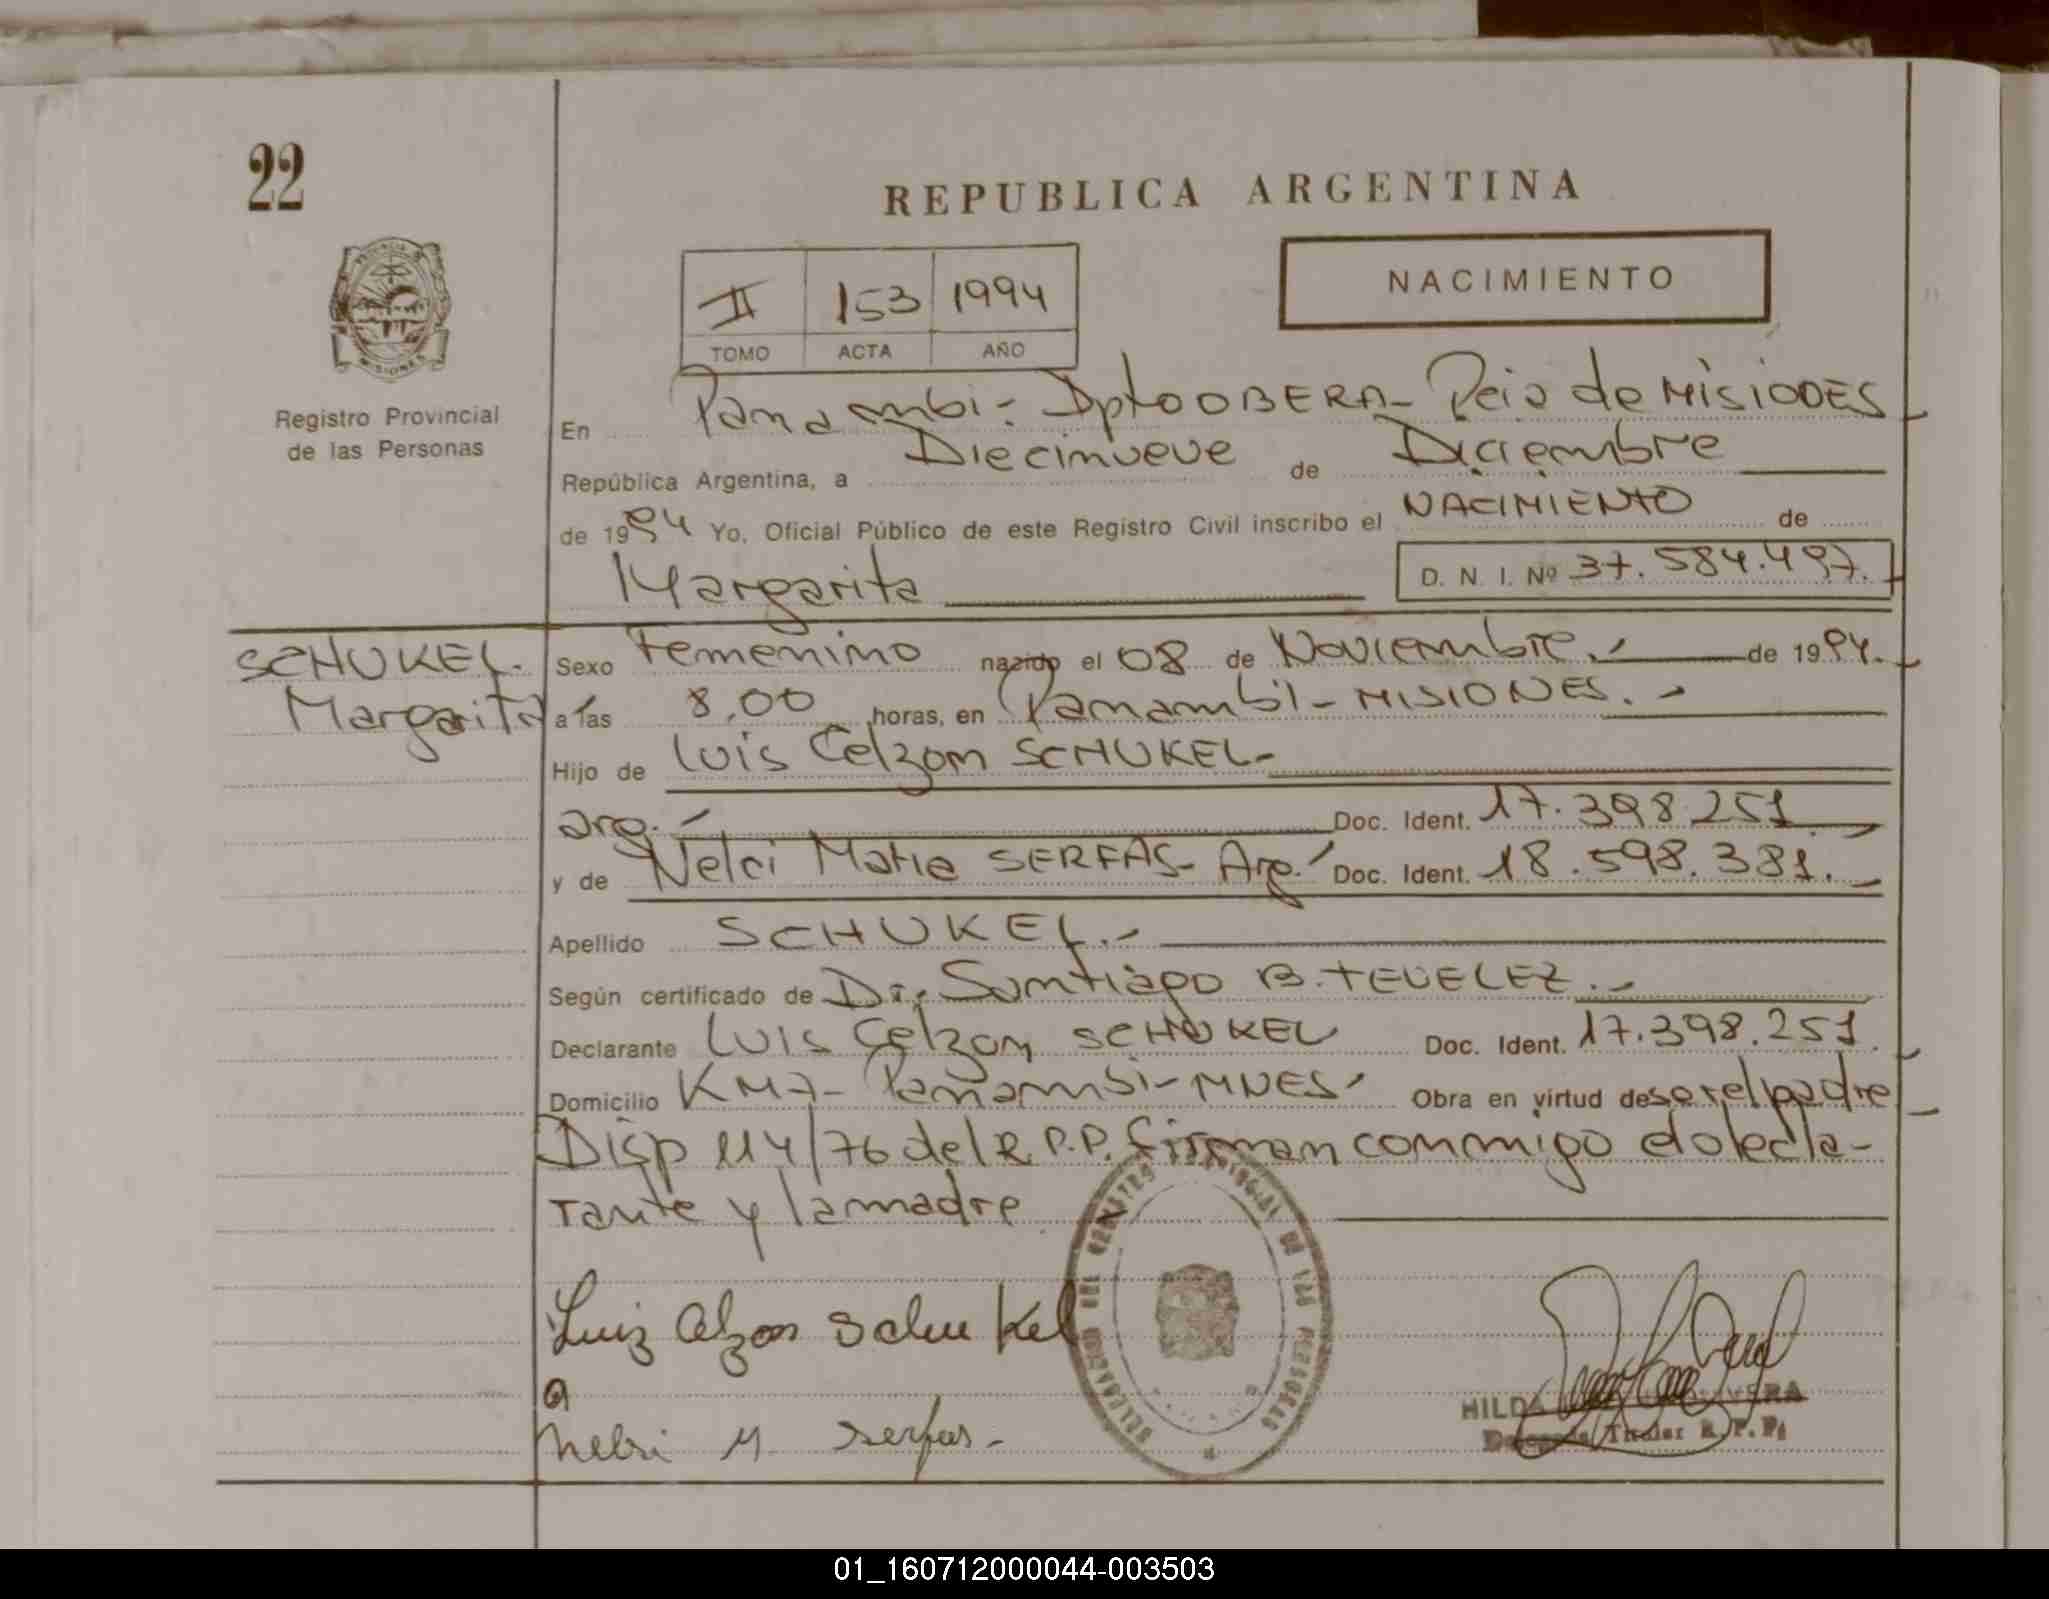 22
REPUBLICA ARGENTINA
II 153 1994
TOMO ACTA AÑO
NACIMIENTO
Registro Provincial
de las Personas
En Panambi - Dpto OBERA - Pcia de MISIONES
República Argentina, a Diecinueve de Diciembre
de 1994 Yo, Oficial Público de este Registro Civil inscribo el NACIMIENTO de
Margarita D. N. I. Nº 37.584.497.
SCHUKEL.
Margarita
Sexo Femenino nacido el 08 de Noviembre. de 1994.
a las 8,00 horas, en Panambi - MISIONES. -
Hijo de Luis Celzon SCHUKEL -
arg. Doc. Ident. 17.398.251
y de Nelci SERFAS - Arg. Doc. Ident. 18.598.381.
Apellido SCHUKEL. -
Según certificado de Dr. Santiago B. TEVELEZ. -
Declarante LUIS Celzon SCHUKEL Doc. Ident. 17.398.251
Domicilio KM 7 - Panambi - MNES Obra en virtud de ser el padre
Disp 114/76 del R.P.P. firman conmigo el decla-
rante y la madre
Luiz Schukel
M. Serfas -
DELEGACION DEL REGISTRO PROVINCIAL DE LAS PERSONAS
HILDA
Delegada Titular R. P. P.
01_160712000044-003503